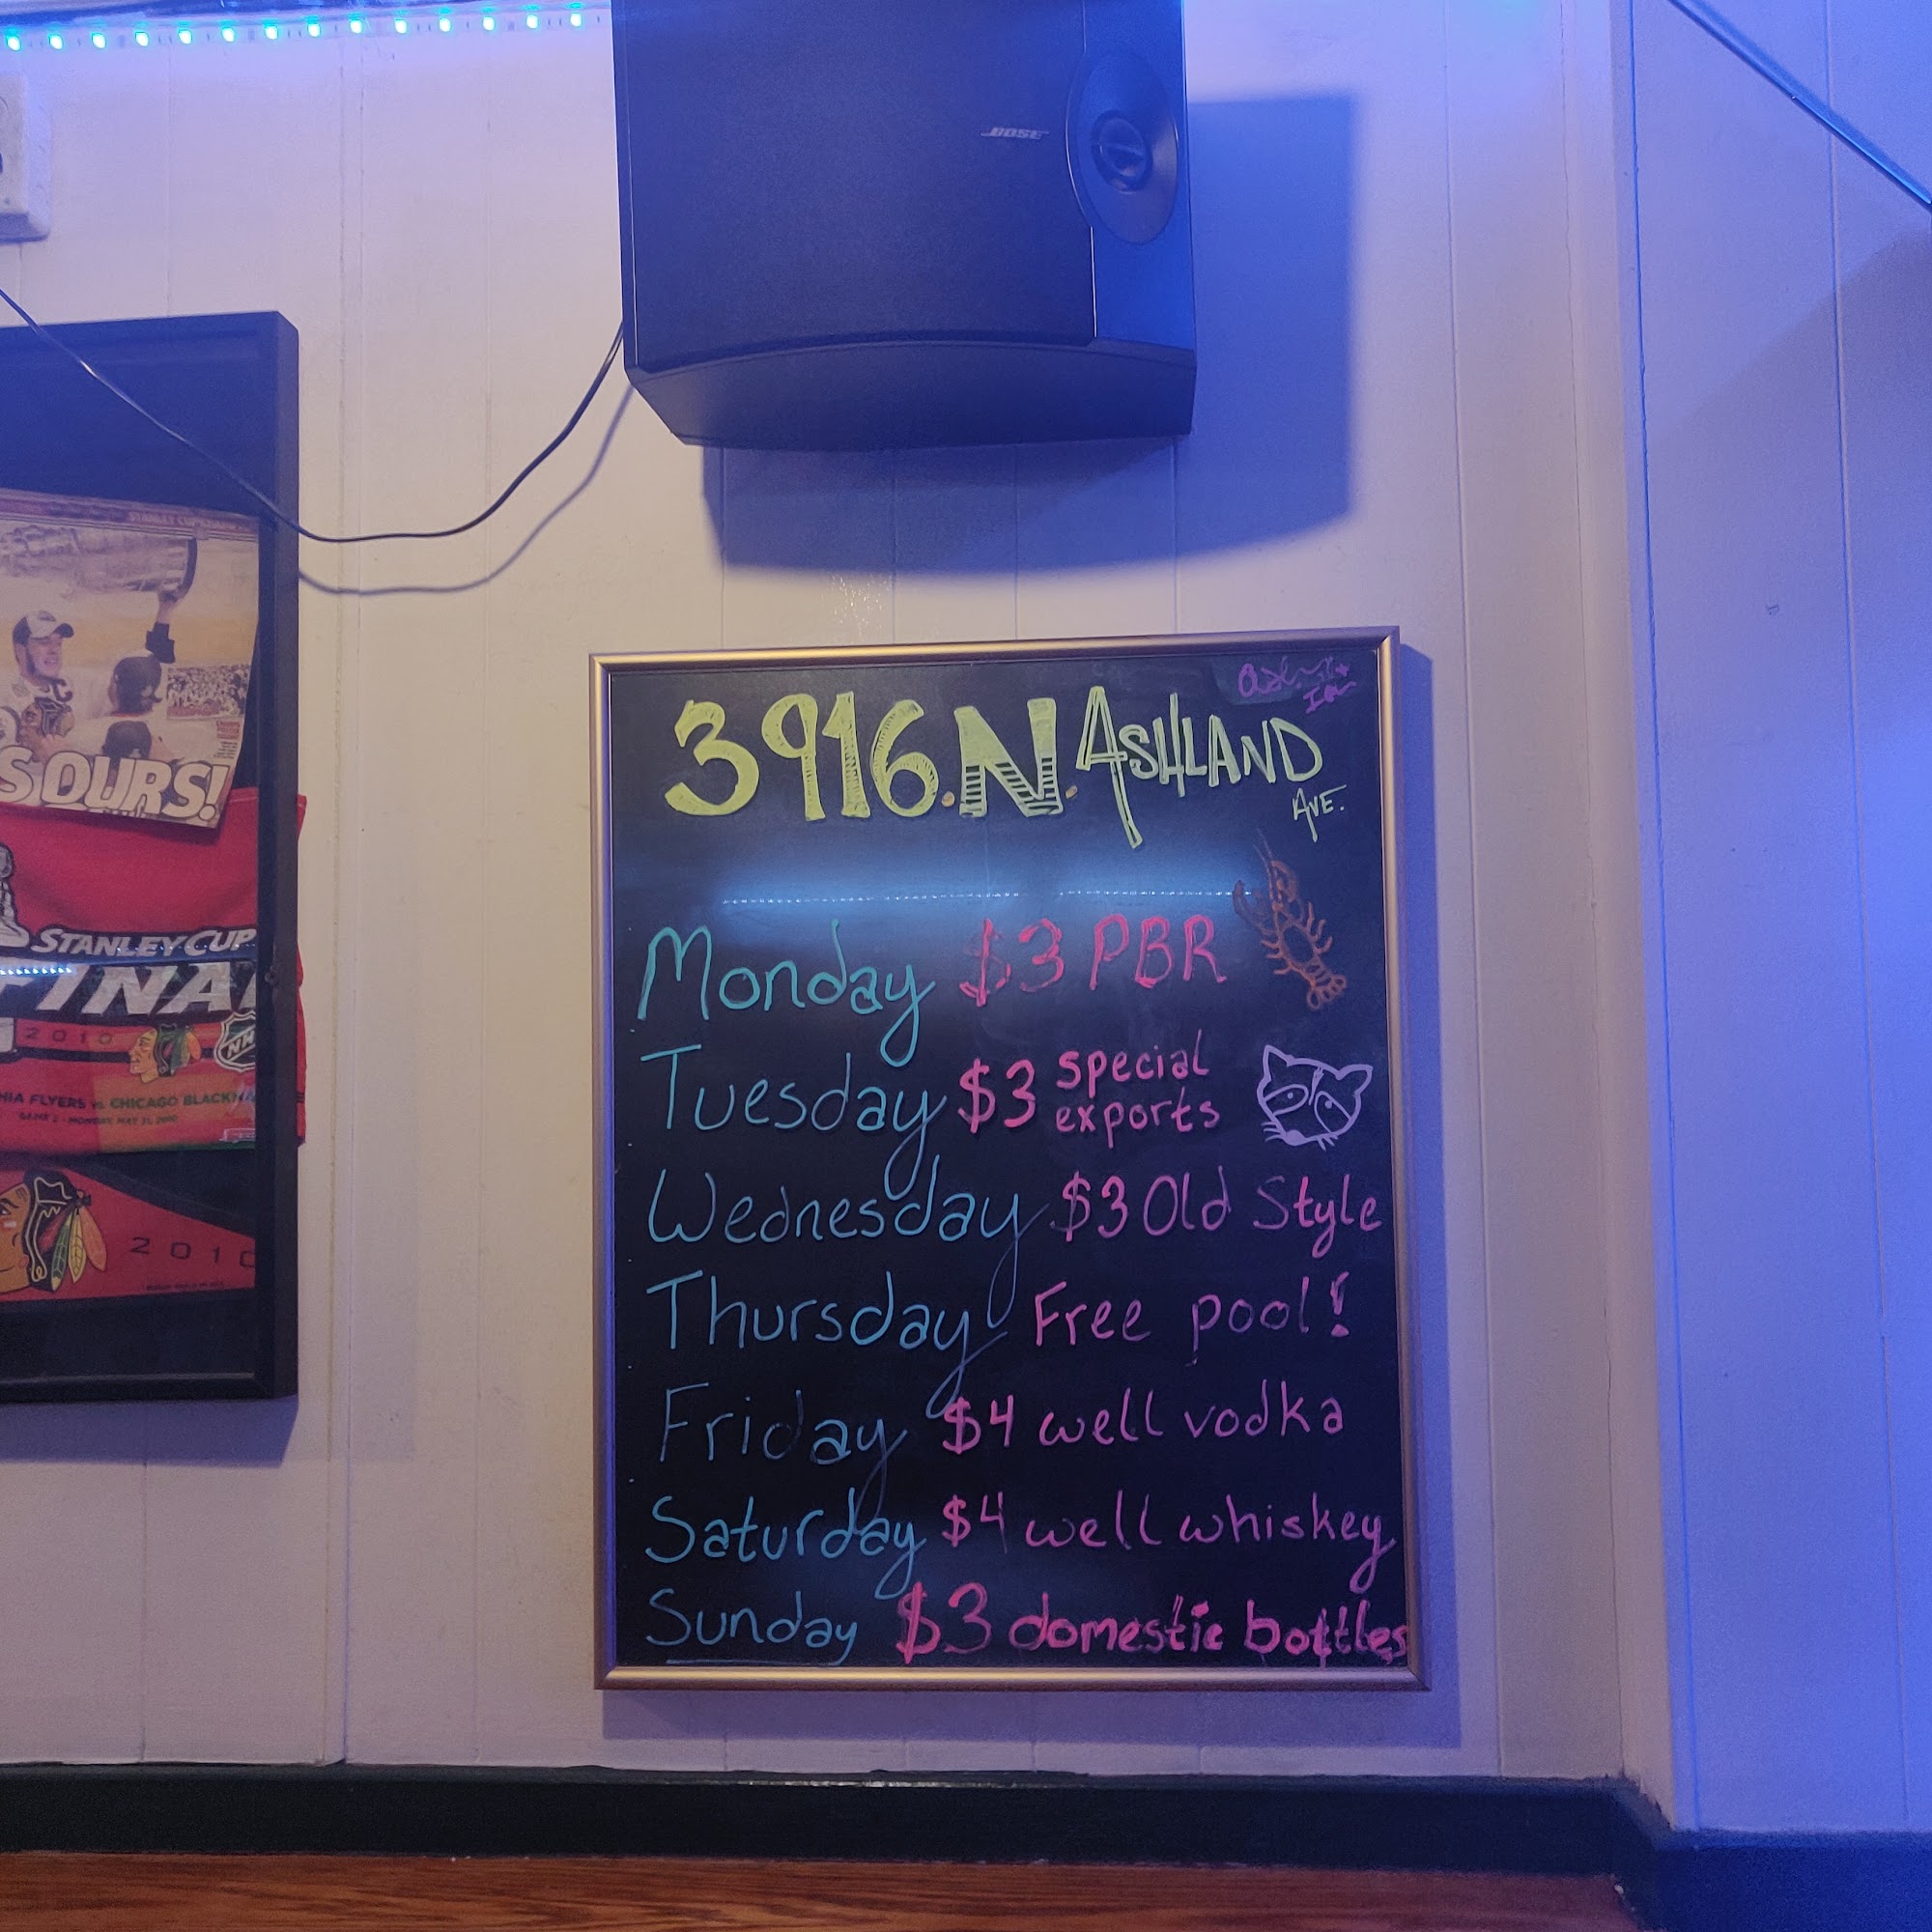 BOSE
S OURS!
STANLEY CUP
FINAL
2010
NHL
HIA FLYERS vs. CHICAGO BLACKHAWKS
GAME 2 - MONDAY, MAY 31, 2010
2010
3916. N. ASHLAND
AVE.
Monday $3 PBR
Tuesday $3 special
exports
Wednesday $3 Old Style
Thursday Free pool!
Friday $4 well vodka
Saturday $4 well whiskey
Sunday $3 domestic bottles